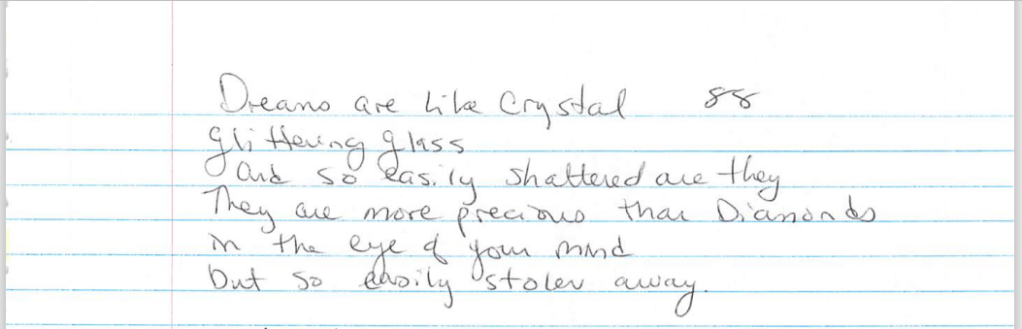 Dreams are like Crystal 88
glittering glass
and so easily shattered are they
They are more precious than Diamonds
in the eye of your mind
but so easily stolen away.